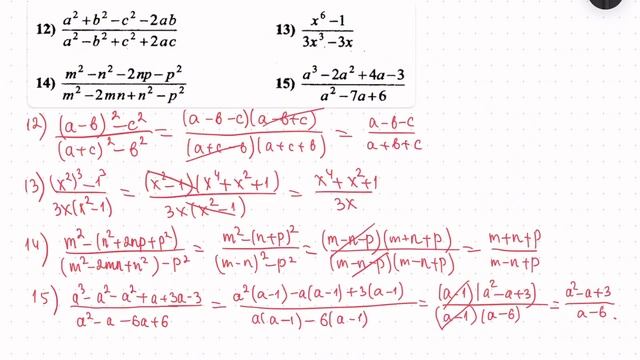 12) (a²+b²−c²−2ab)/(a²−b²+c²+2ac) 13) (x⁶−1)/(3x³−3x)
14) (m²−n²−2np−p²)/(m²−2mn+n²−p²) 15) (a³−2a²+4a−3)/(a²−7a+6)
12) ((a-в)²-c²)/((a+c)²-в²) = ((a-в-c)(a-в+c))/((a+c-в)(a+c+в)) = (a-в-c)/(a+в+c)
13) ((x²)³-1³)/(3x(x²-1)) = ((x²-1)(x⁴+x²+1))/(3x(x²-1)) = (x⁴+x²+1)/(3x)
14) (m²-(n²+2np+p²))/((m²-2mn+n²)-p²) = (m²-(n+p)²)/((m-n)²-p²) = ((m-n-p)(m+n+p))/((m-n-p)(m-n+p)) = (m+n+p)/(m-n+p)
15) (a³-a²-a²+a+3a-3)/(a²-a-6a+6) = (a²(a-1)-a(a-1)+3(a-1))/(a(a-1)-6(a-1)) = ((a-1)(a²-a+3))/((a-1)(a-6)) = (a²-a+3)/(a-6).